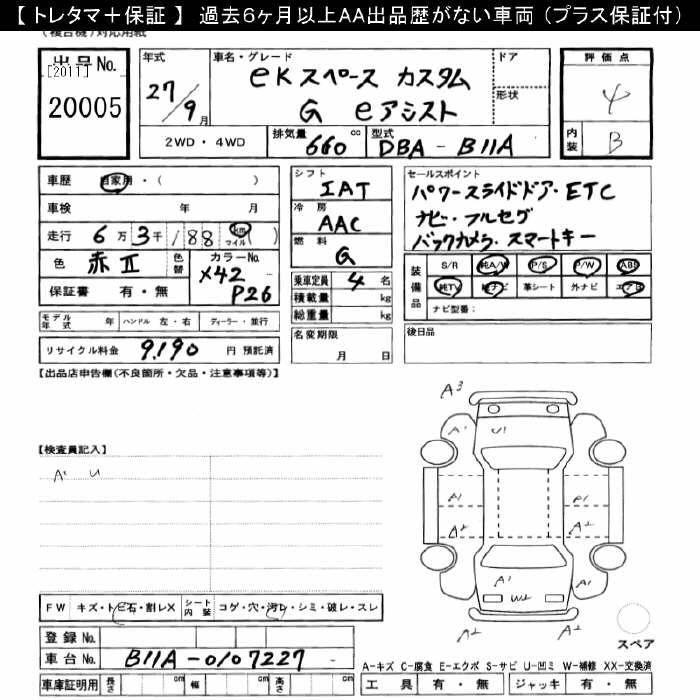 【 トレタマ＋保証 】 過去6ヶ月以上AA出品歴がない車両（プラス保証付）
出品No.
[2011]
20005
年式
27/9月
車名・グレード
eKスペース カスタム
G eアシスト
ドア
形状
評価点
4
内装 B
2WD・4WD
排気量 660 cc
型式 DBA-B11A
車歴 自家用・( )
車検 年 月
走行 6万3千188 km マイル ( )
色 赤Ⅱ 色替
カラーNo. X42 P26
保証書 有・無
シフト
IAT
冷房
AAC
燃料
G
乗車定員 4 名
積載量 kg
総重量 kg
セールスポイント
パワースライドドア・ETC
ナビ・フルセグ
バックカメラ・スマートキー
装備品
S/R 純A/W P/S P/W ABS
純TV 純ナビ 革シート 外ナビ エアB
ナビ型番：
モデル年式 年 ハンドル 左・右 ディーラー・並行
リサイクル料金 9,190 円 預託済
名変期限
月 日
後日品
【出品店申告欄(不良箇所・欠品・注意事項等)】
A3
A1 U1
【検査員記入】
A2 U
A1 A1
A2 A2
A1
W2
A2 A2
FW キズ・トビ石・割レX シート内装 コゲ・穴・汚レ・シミ・破レ・スレ
スペア
登録No.
車台No. B11A-0107227
A-キズ C-腐食 E-エクボ S-サビ U-凹ミ W-補修 XX-交換済
車庫証明用 長さ cm 幅 cm 高さ cm
工具 有・無 ジャッキ 有・無